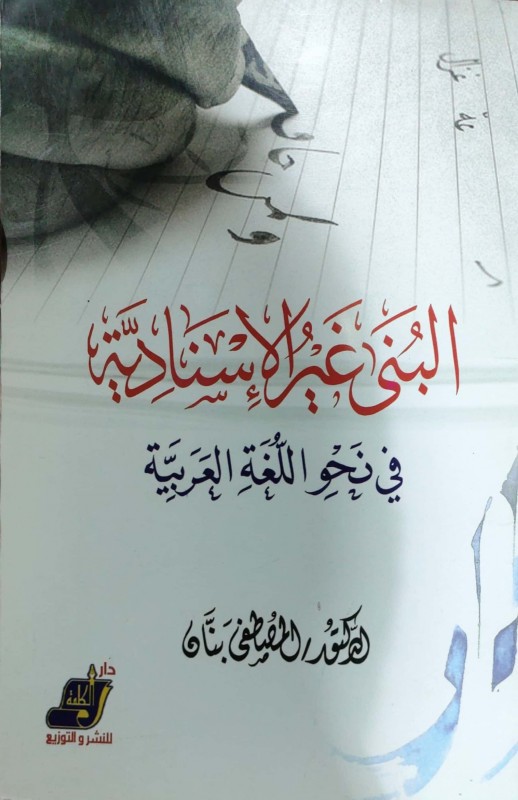 غزل
ولمن خاف
البُنَى غَيْرُ الإِسْنَادِيَّة
فِي نَحْوِ اللُّغَةِ العَرَبِيَّة
الدكتور/ المُصْطَفَى بَنَّان
دار
الكلمة
للنشر و التوزيع